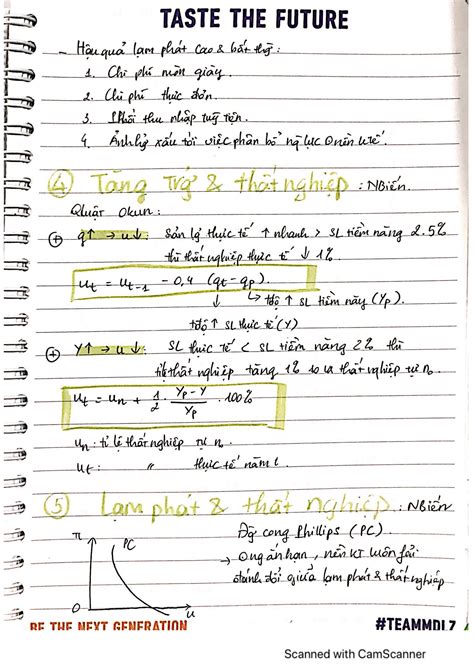 TASTE THE FUTURE
- Hậu quả lạm phát cao & bất thg:
1. Chi phí mòn giày.
2. Chi phí thực đơn.
3. Phối thu nhập tuỳ tiện.
4. Ảnh hg xấu tới việc phân bổ ng lực nền ktế.
④ Tăng trg & thất nghiệp : NBiến.
Qluật Okun:
⊕ q↑ → u↓: Sản lg thực tế ↑ nhanh > SL tiềm năng 2.5%
thì thất nghiệp thực tế ↓ 1%.
ut = ut-1 - 0,4 (qt - qp).
↳ tđộ ↑ SL tiềm năng (Yp).
tđộ ↑ SL thực tế (Y)
⊕ Y↑ → u↓: SL thực tế < SL tiềm năng 2% thì
tlệ thất nghiệp tăng 1% so vs thất nghiệp tự n.
ut = un + 1/2 . Yp - Y / Yp . 100%
un: tỉ lệ thất nghiệp tự n.
ut: " thực tế năm t.
⑤ Lạm phát & thất nghiệp : NBiến
Đg cong Phillips (PC).
→ ngắn hạn, nền kt luôn fải
đánh đổi giữa lạm phát & thất nghiệp
π
PC
0
u
BE THE NEXT GENERATION
#TEAMMDL7
Scanned with CamScanner